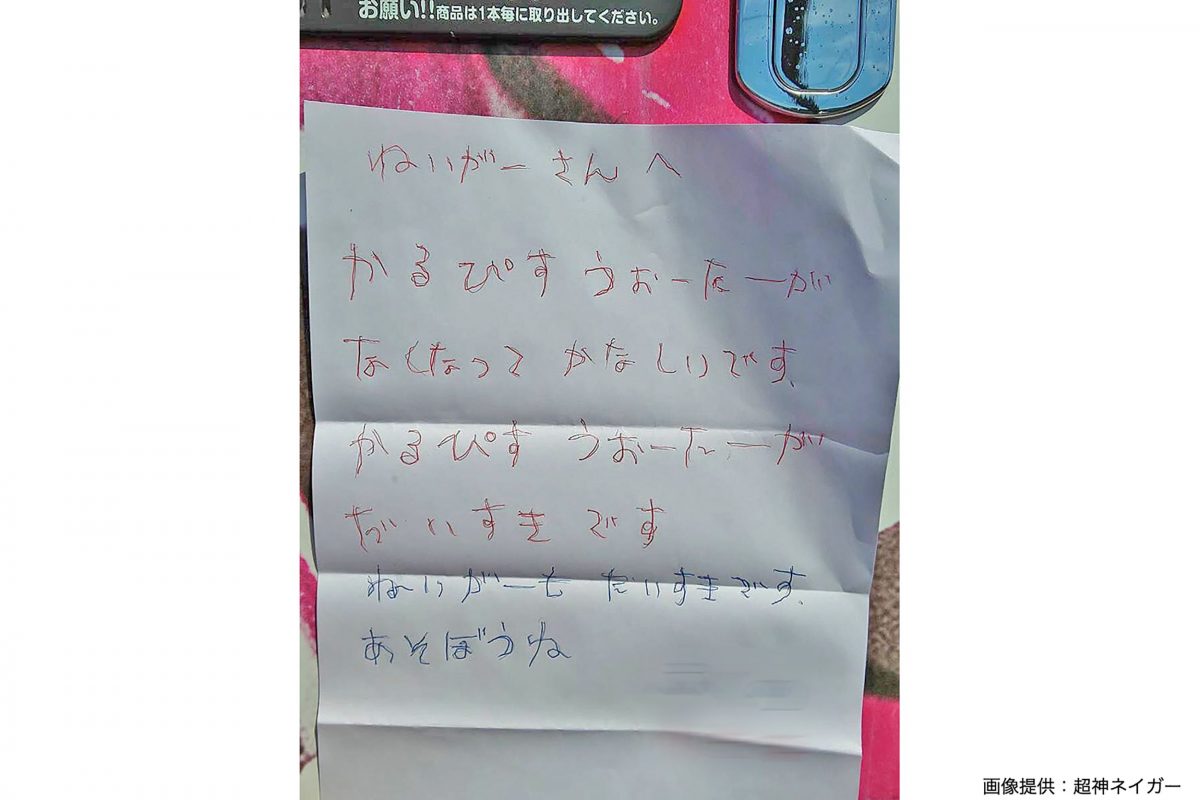 お願い!!商品は1本毎に取り出してください。
ねいがーさんへ
かるぴす うおーたーが
なくなって かなしいです。
かるぴす うおーたーが
だいすき です
ねいがーも だいすきです。
あそぼうね
画像提供：超神ネイガー